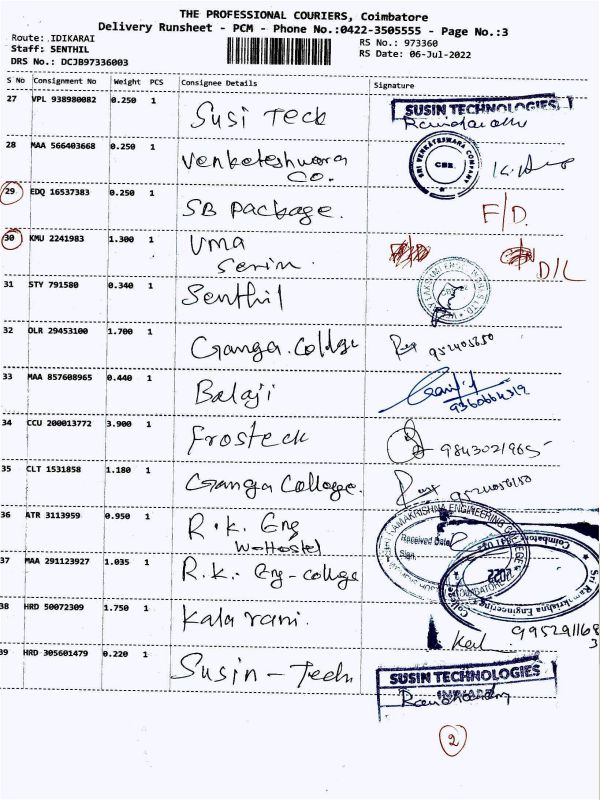 THE PROFESSIONAL COURIERS, Coimbatore
Delivery Runsheet - PCM - Phone No.:0422-3505555 - Page No.:3
Route: IDIKARAI
Staff: SENTHIL
DRS No.: DCJB97336003
RS No.: 973360
RS Date: 06-Jul-2022
S No Consignment No Weight PCS Consignee Details Signature
27 VPL 938980082 0.250 1 Susi Teck SUSIN TECHNOLOGIES
28 MAA 566403668 0.250 1 Venketeshwara Co. SRI VENKATESWARA COMPANY CBE.
29 EDQ 16537383 0.250 1 SB package. F/D.
30 KMU 2241983 1.300 1 Uma D/L
31 STY 791580 0.340 1 Senthil
32 OLR 29453100 1.700 1 Ganga. College
33 MAA 857608965 0.440 1 Balaji
34 CCU 200013772 3.900 1 Frosteck 9843021965
35 CLT 1531858 1.180 1 Ganga College.
36 ATR 3113959 0.950 1 R.k. Eng W-Hostel RAMAKRISHNA ENGINEERING COLLEGE Received Date Sign.
37 MAA 291123927 1.035 1 R.k. Eng-college Sri Ramakrishna Engineering College Coimbatore
38 HRD 50072309 1.750 1 Kala rani.
39 HRD 305601479 0.220 1 Susin-Tech SUSIN TECHNOLOGIES
2